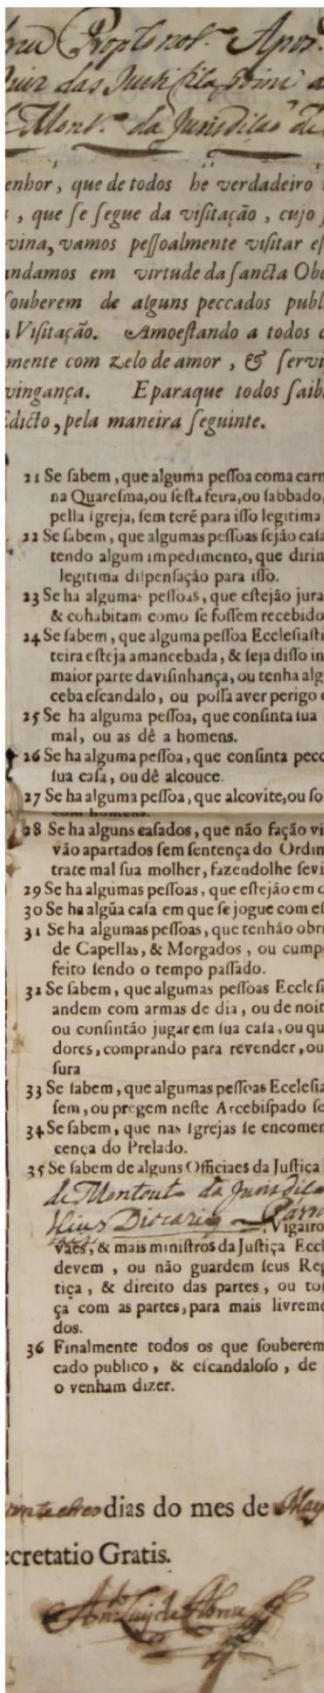 das Justifica
da Jurisdicao de
enhor, que de todos he verdadeiro
, que ſe ſegue da viſitação, cujo
vina, vamos peſſoalmente viſitar eſ
ndamos em virtude da ſancta Obe
ſouberem de alguns peccados publ
Viſitação. Amoeſtando a todos
mente com zelo de amor, & ſervi
vingança. Eparaque todos ſaib
Edicto, pela maneira ſeguinte.
21 Se ſabem, que alguma peſſoa coma carn
na Quareſma, ou ſeſta feira, ou ſabbado,
pella igreja, ſem terẽ para iſſo legitima
22 Se ſabem, que algumas peſſoas ſejão caſa
tendo algum impedimento, que dirim
legitima diſpenſação para iſſo.
23 Se ha algumas peſſoas, que eſtejão jura
& cohabitam como ſe foſſem recebido
24 Se ſabem, que alguma peſſoa Eccleſiaſti
teira eſteja amancebada, & ſeja diſſo in
maior parte daviſinhança, ou tenha alg
ceba eſcandalo, ou poſſa aver perigo
25 Se ha alguma peſſoa, que conſinta ſua
mal, ou as dê a homens.
26 Se ha alguma peſſoa, que conſinta pecc
ſua caſa, ou dê alcouce.
27 Se ha alguma peſſoa, que alcovite, ou ſo
com homens.
28 Se ha alguns caſados, que não fação vi
vão apartados ſem ſentença do Ordin
trate mal ſua molher, fazendolhe ſevi
29 Se ha algumas peſſoas, que eſtejão em
30 Se ha algũa caſa em que ſe jogue com eſ
31 Se ha algumas peſſoas, que tenhão obri
de Capellas, & Morgados, ou cump
feito ſendo o tempo paſſado.
32 Se ſabem, que algumas peſſoas Eccleſi
andem com armas de dia, ou de noit
ou conſintão jugar em ſua caſa, ou qu
dores, comprando para revender, ou
ſura
33 Se ſabem, que algumas peſſoas Eccleſia
ſem, ou pregem neſte Arcebiſpado ſe
34 Se ſabem, que nas Igrejas ſe encomen
cença do Prelado.
35 Se ſabem de alguns Officiaes da Juſtiça
da Jurisdica
Vigairo
vaes, & mais miniſtros da Juſtiça Eccl
devem, ou não guardem ſeus Reg
tiça, & direito das partes, ou to
ça com as partes, para mais livreme
dos.
36 Finalmente todos os que ſouberem
cado publico, & eſcandaloſo, de
o venham dizer.
dias do mes de May
ecretatio Gratis.